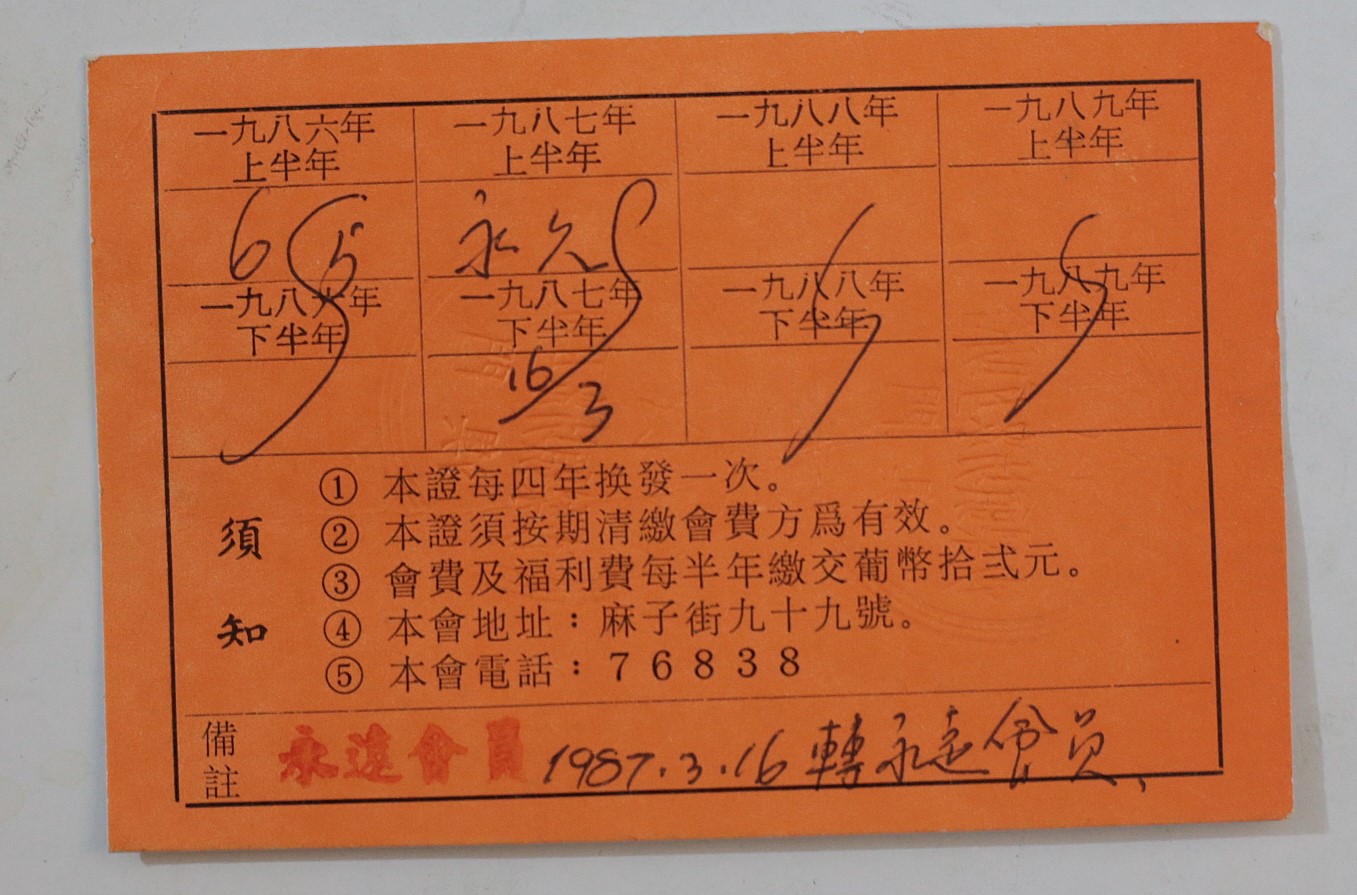 一九八六年 一九八七年 一九八八年 一九八九年
上半年 上半年 上半年 上半年
6 永久
一九八六年 一九八七年 一九八八年 一九八九年
下半年 下半年 下半年 下半年
16/3
須知
① 本證每四年換發一次。
② 本證須按期清繳會費方爲有效。
③ 會費及福利費每半年繳交葡幣拾弍元。
④ 本會地址：麻子街九十九號。
⑤ 本會電話：76838
備註 永遠會員 1987.3.16 轉永遠會員、